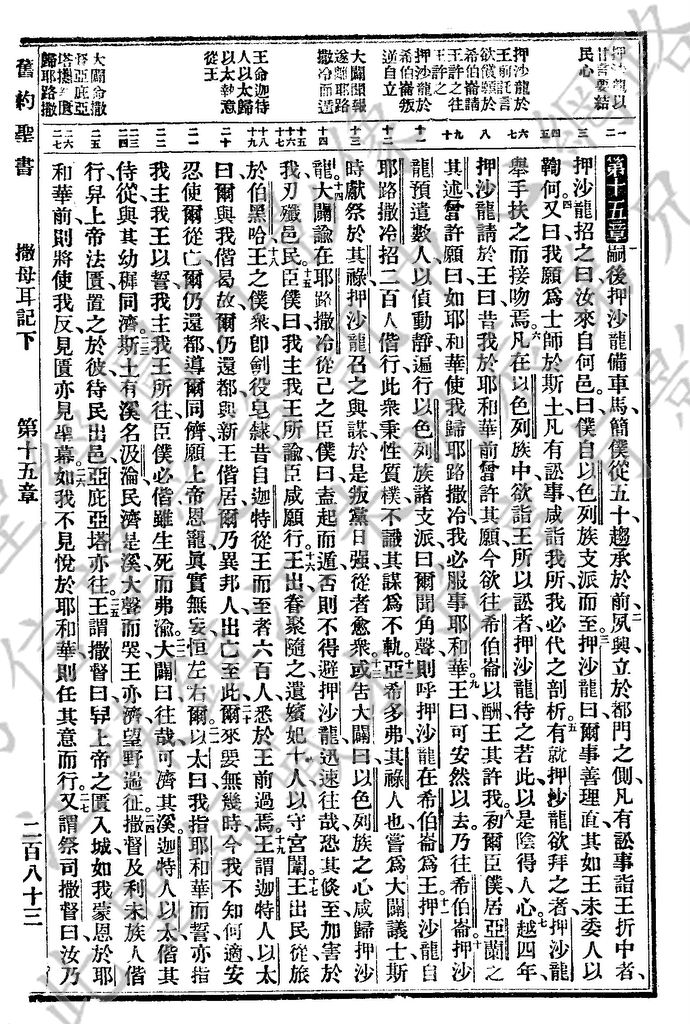 第十五章 嗣後押沙龍備車馬簡僕從五十趨承於前夙興立於都門之側凡有訟事詣王折中者
押沙龍招之曰汝來自何邑曰僕自以色列族支派而至押沙龍曰爾事善理直其如王未委人以
鞫何又曰我願爲士師於斯土凡有訟事咸詣我所我必代之剖析有就押沙龍欲拜之者押沙龍
舉手扶之而接吻焉凡在以色列族中欲詣王所以訟者押沙龍待之若此以是陰得人心越四年
押沙龍請於王曰昔我於耶和華前曾許其願今欲往希伯崙以酬王其許我初爾臣僕居亞蘭之
其述曾許願曰如耶和華使我歸耶路撒冷我必服事耶和華王曰可安然以去乃往希伯崙押沙
龍預遣數人以偵動靜遍行以色列族諸支派曰爾聞角聲則呼押沙龍在希伯崙爲王押沙龍自
耶路撒冷招二百人偕行此衆秉性質樸不識其謀爲不軌亞希多弗其祿人也嘗爲大闢議士斯
時獻祭於其祿押沙龍召之與謀於是叛黨日強從者愈衆或告大闢曰以色列族之心咸歸押沙
龍大闢諭在耶路撒冷從己之臣僕曰盍起而遁否則不得避押沙龍迅速往哉恐其倏至加害於
我刃殲邑民臣僕曰我主我王所諭臣咸願行王出眷聚隨之遺嬪妃十人以守宮闈王出民從旅
於伯黑哈王之僕衆卽劊役皂隸昔自迦特從王而至者六百人悉於王前過焉王謂迦特人以太
曰爾與我偕曷故爾仍還都與新王偕居爾乃異邦人出亡至此爾來要無幾時今我不知何適安
忍使爾從亡爾仍還都導爾同儕願上帝恩寵眞實無妄恒左右爾以太曰我指耶和華而誓亦指
我主我王以誓我主我王所往臣僕必偕雖生死而弗渝大闢曰往哉可濟其溪迦特人以太偕其
侍從與其幼穉同濟斯土有溪名汲淪民濟是溪大聲而哭王亦濟望野遄征撒督及利未族人偕
行舁上帝法匱置之於彼待民出邑亞庇亞塔亦往王謂撒督曰舁上帝之匱入城如我蒙恩於耶
和華前則將使我反見匱亦見聖幕如我不見悅於耶和華則任其意而行又謂祭司撒督曰汝乃
押沙龍以
甘言要結
民心
押沙龍於
王前託言
欲償願於
希伯崙請
王許之往
王許之
押沙龍於
希伯崙叛
逆自立
大闢聞報
遂離耶路
撒冷而遁
王命迦特
人以太歸
以太執意
從王
大闢命撒
督亞庇亞
塔攜匱
歸耶路撒
舊約聖書
撒母耳記下
第十五章
二百八十三